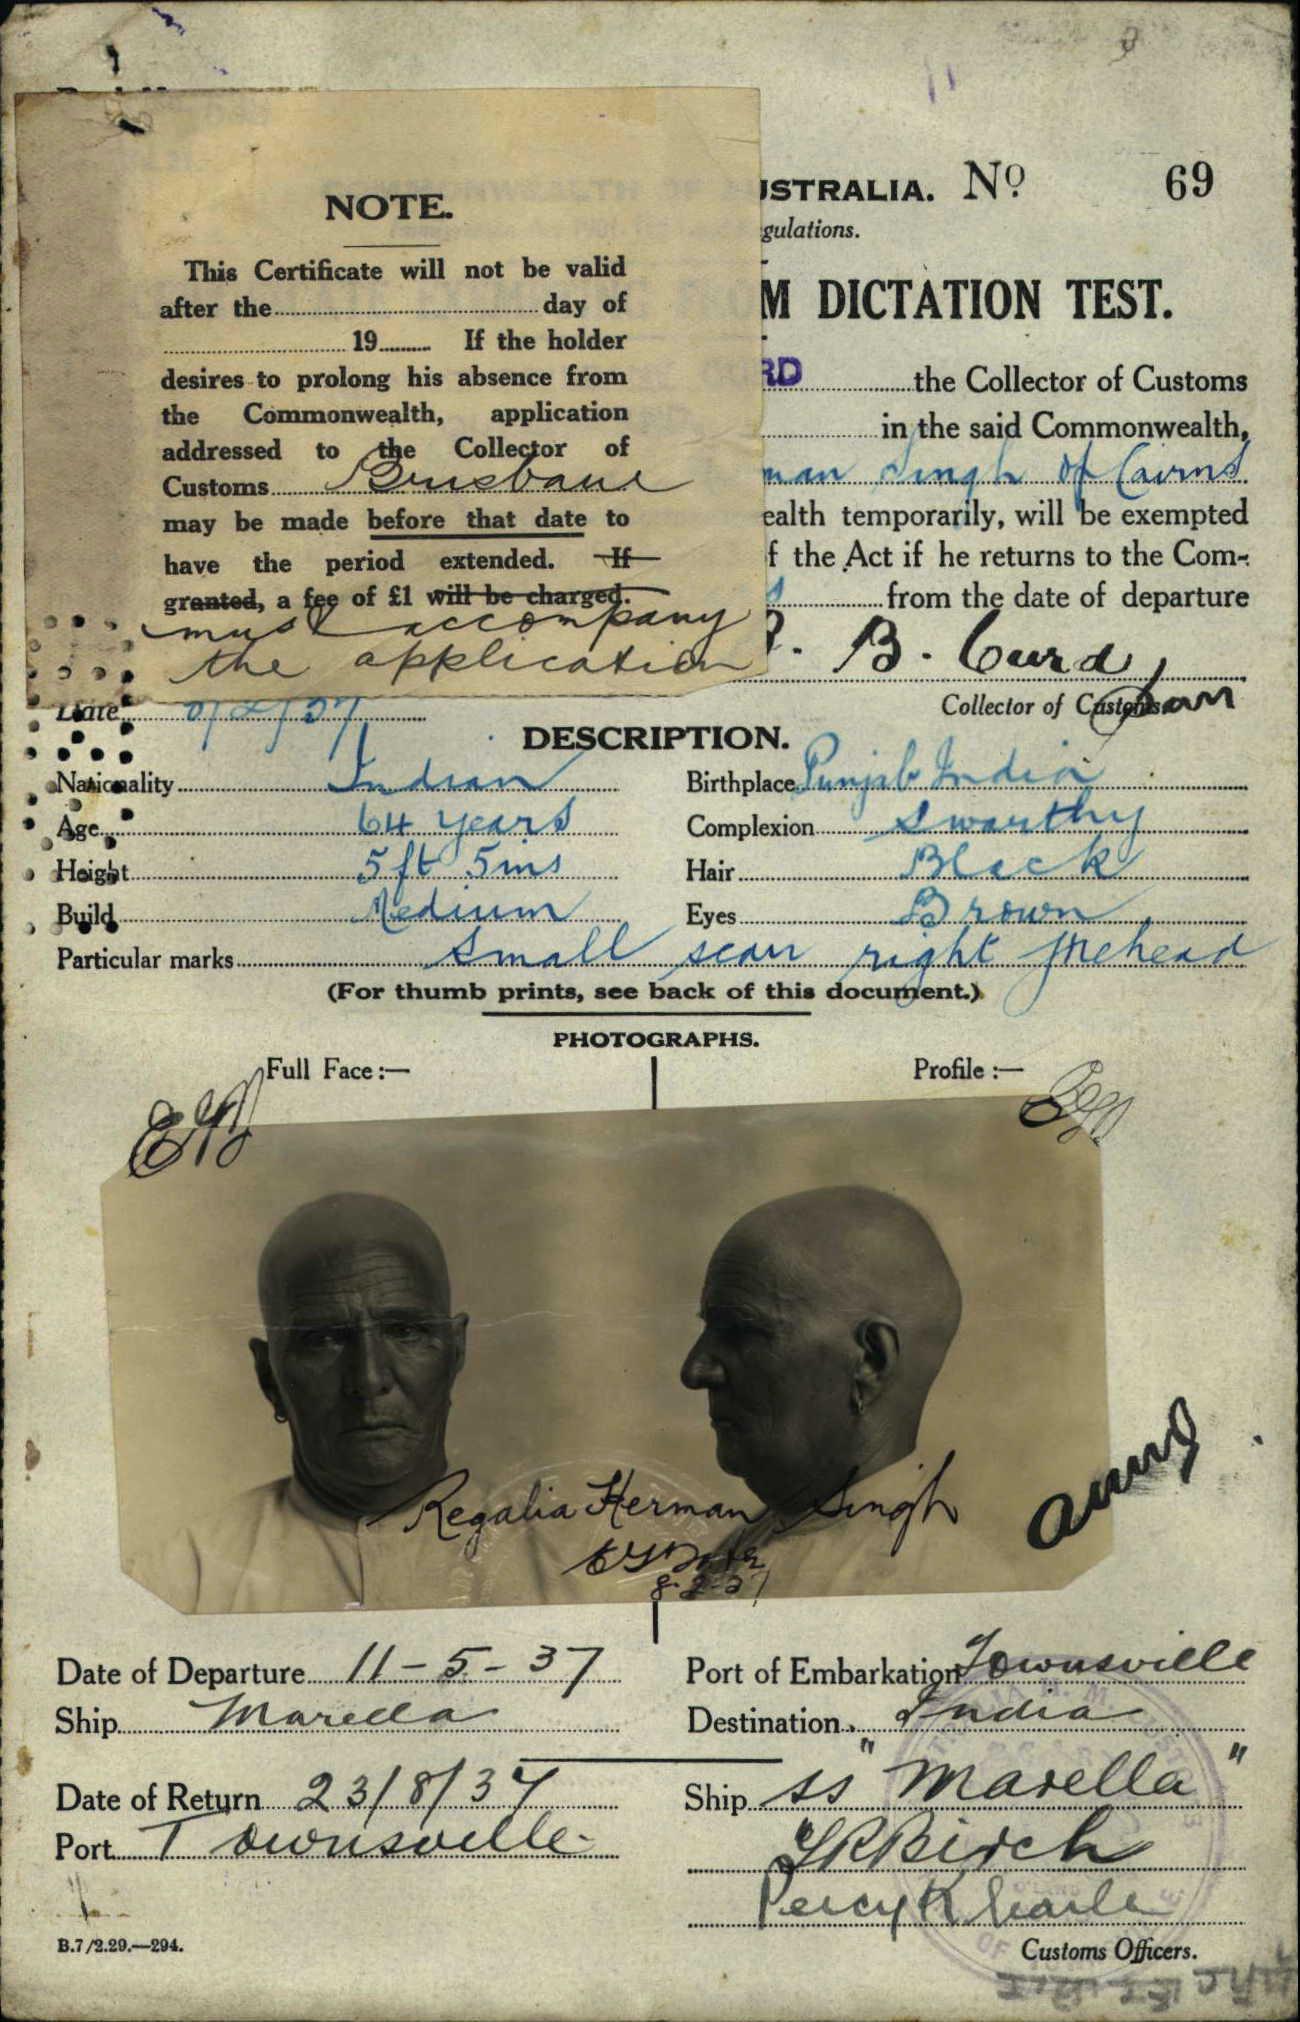 NOTE.
This Certificate will not be valid
after the day of
19 If the holder
desires to prolong his absence from
the Commonwealth, application
addressed to the Collector of
Customs Brisbane
may be made before that date to
have the period extended. If
granted, a fee of £1 will be charged.
must accompany
the application
USTRALIA. No 69
gulations.
M DICTATION TEST.
RD the Collector of Customs
in the said Commonwealth,
man Singh of Cairns
ealth temporarily, will be exempted
f the Act if he returns to the Com-
s from the date of departure
B. Curd
Collector of Customs
Date
DESCRIPTION.
Nationality Indian Birthplace Punjab India
Age 64 years Complexion Swarthy
Height 5ft 5ins Hair Black
Build Medium Eyes Brown
Particular marks Small scar right forehead
(For thumb prints, see back of this document.)
PHOTOGRAPHS.
Full Face:— Profile:—
Regalia Herman Singh
8-2-37
Date of Departure 11-5-37 Port of Embarkation Townsville
Ship Marella Destination India
Date of Return 23/8/37 Ship SS "Marella"
Port Townsville
Birch
Percy K
Customs Officers.
B.7/2.29.—294.